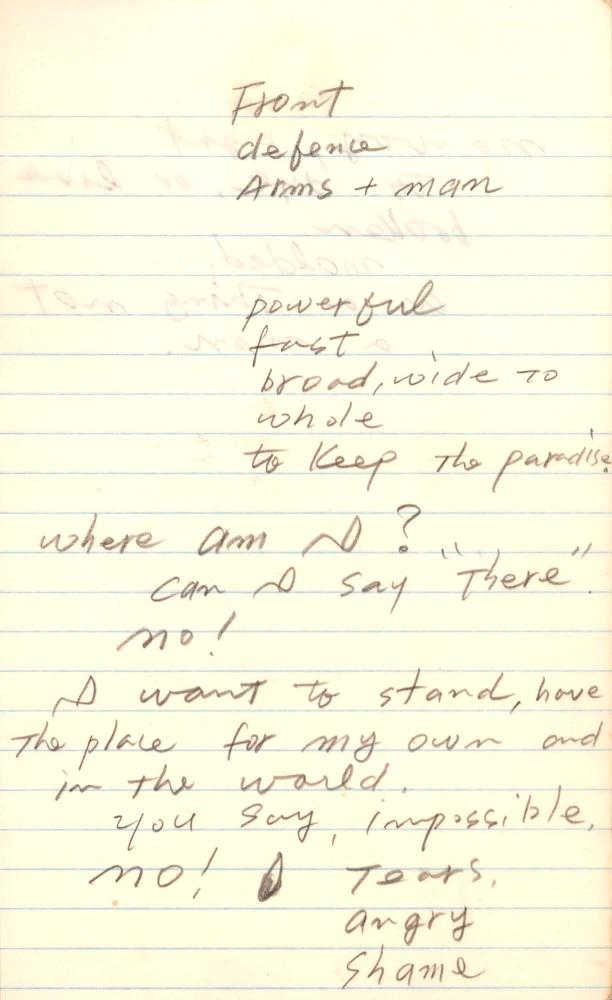 Front
defence
Arms + man
powerful
fast
broad, wide to
whole
to keep the paradise
where am I ?
can I say "There".
no!
I want to stand, have
The place for my own and
in the world.
you say, impossible,
no! Tears,
angry
shame